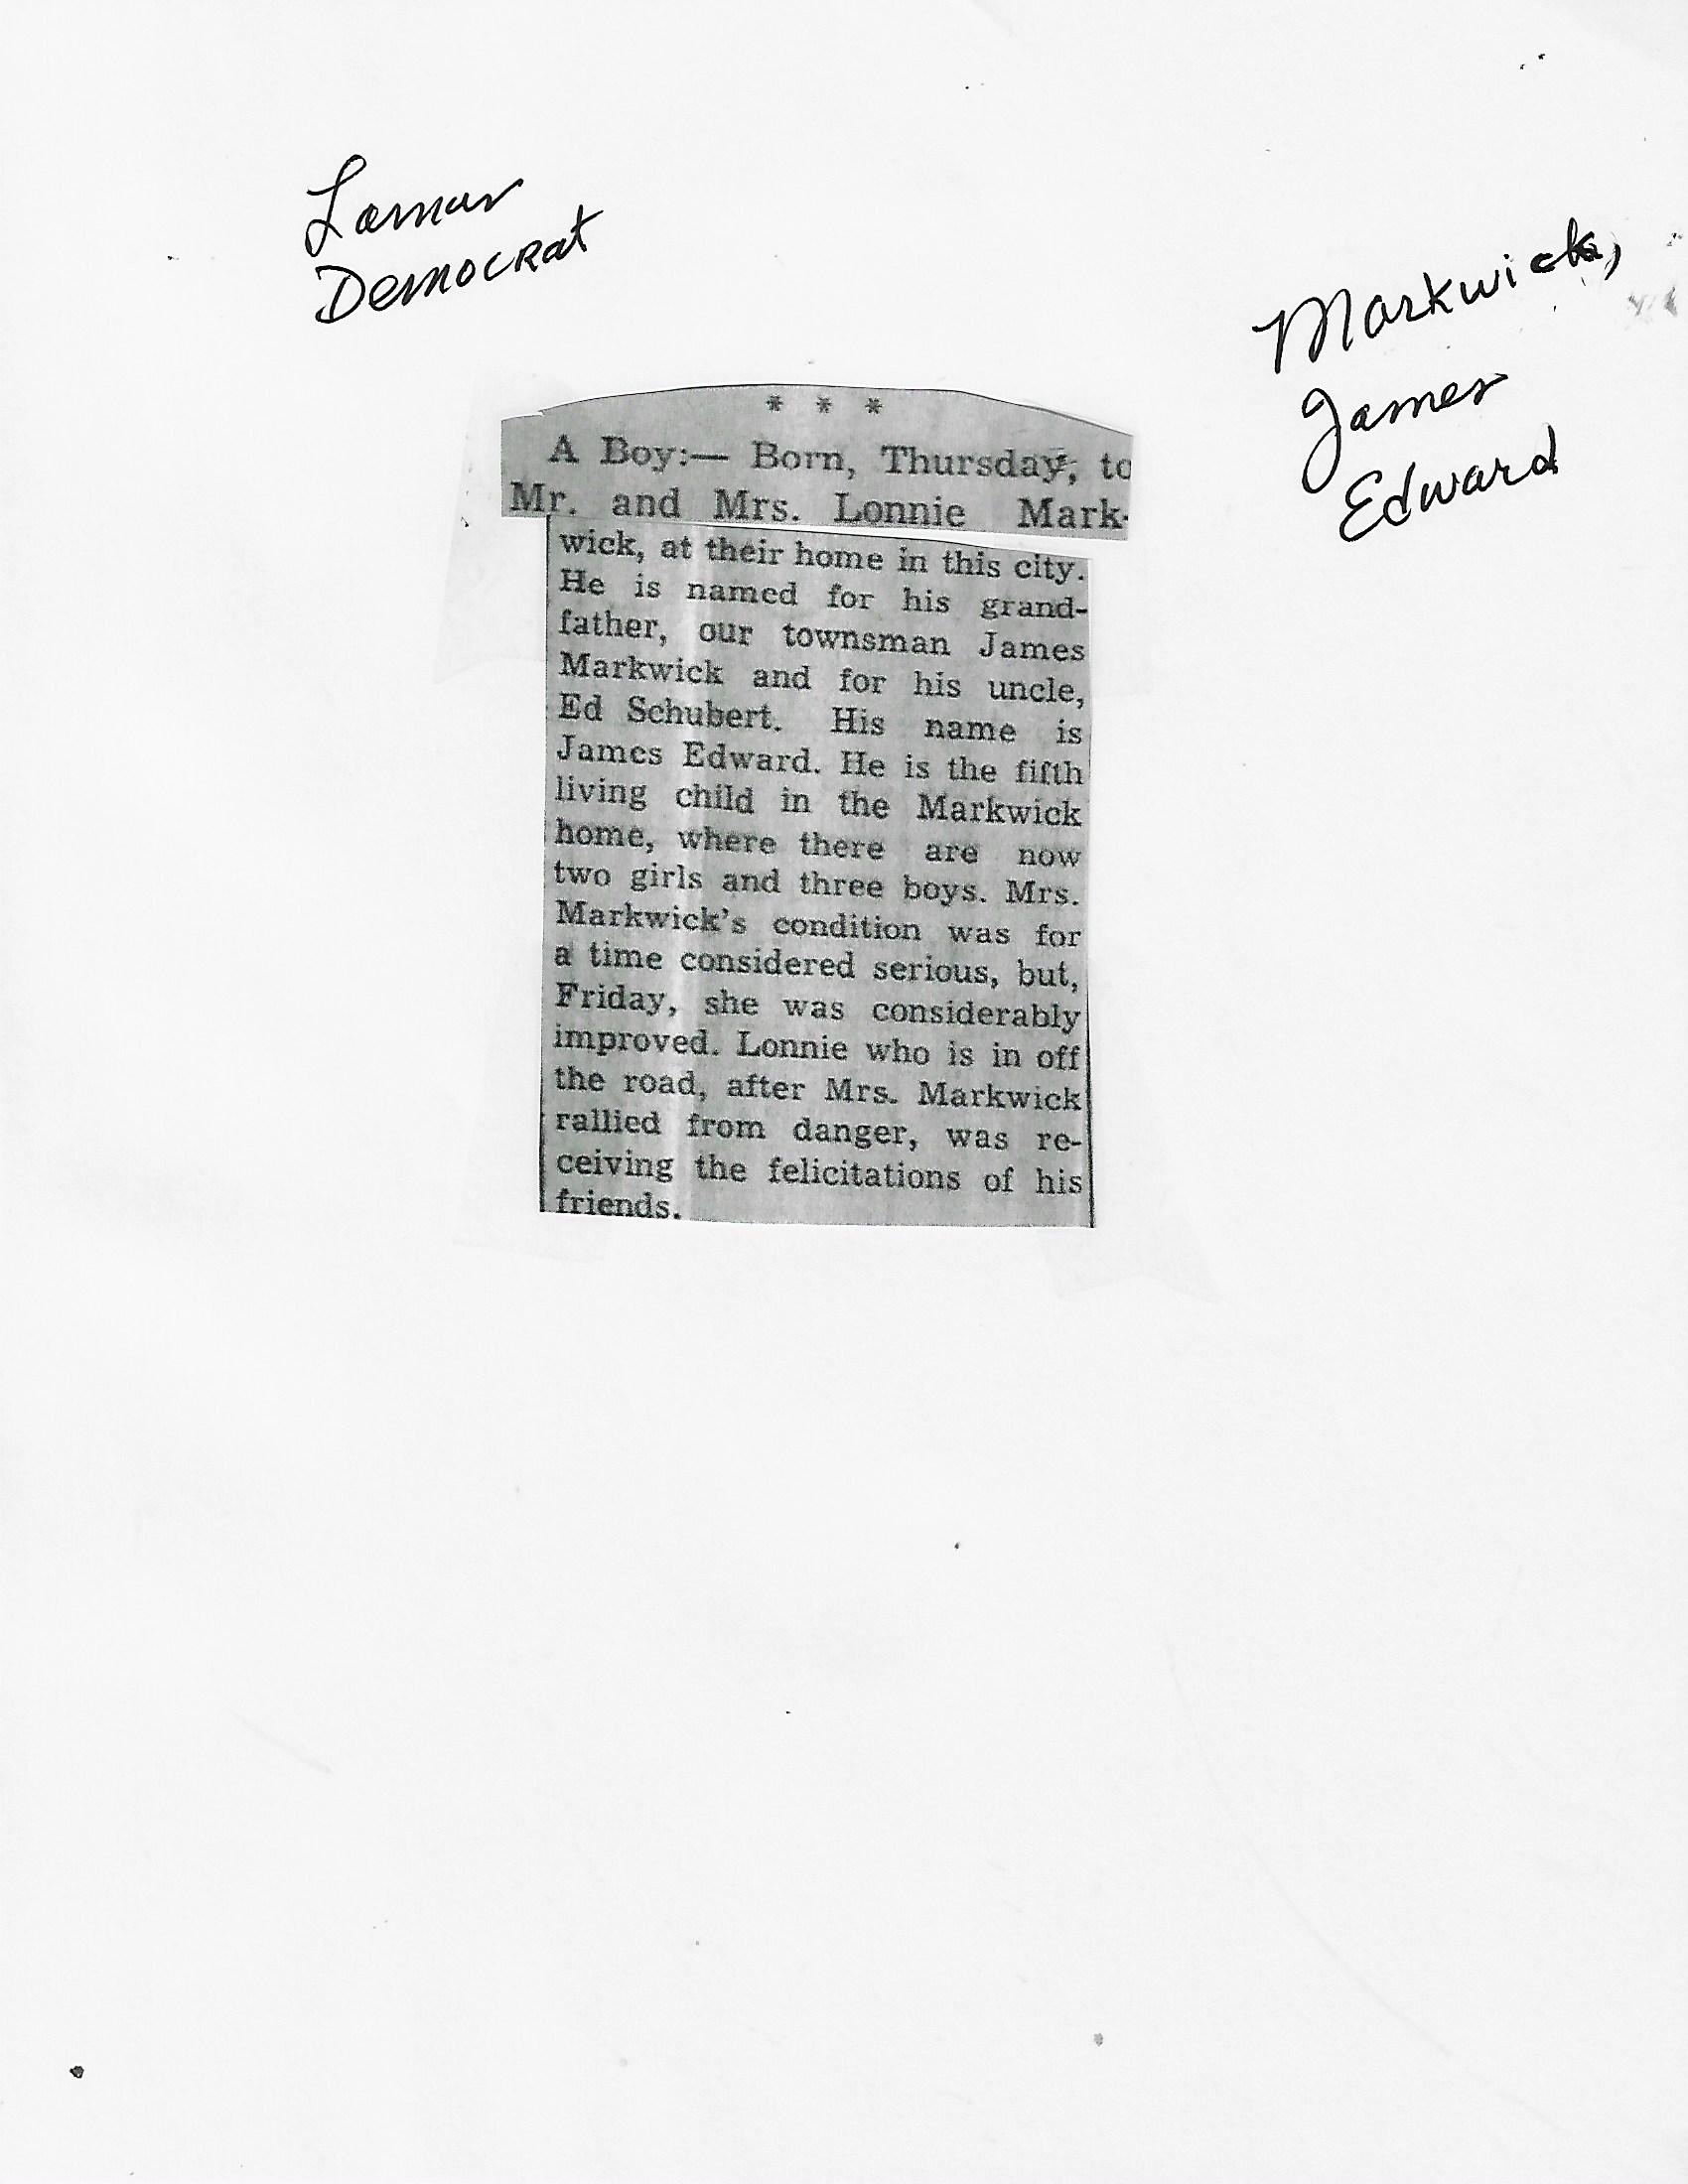 Lamar
Democrat
Markwick,
James
Edward
* * *
A Boy:— Born, Thursday, to
Mr. and Mrs. Lonnie Mark-
wick, at their home in this city.
He is named for his grand-
father, our townsman James
Markwick and for his uncle,
Ed Schubert. His name is
James Edward. He is the fifth
living child in the Markwick
home, where there are now
two girls and three boys. Mrs.
Markwick's condition was for
a time considered serious, but,
Friday, she was considerably
improved. Lonnie who is in off
the road, after Mrs. Markwick
rallied from danger, was re-
ceiving the felicitations of his
friends.